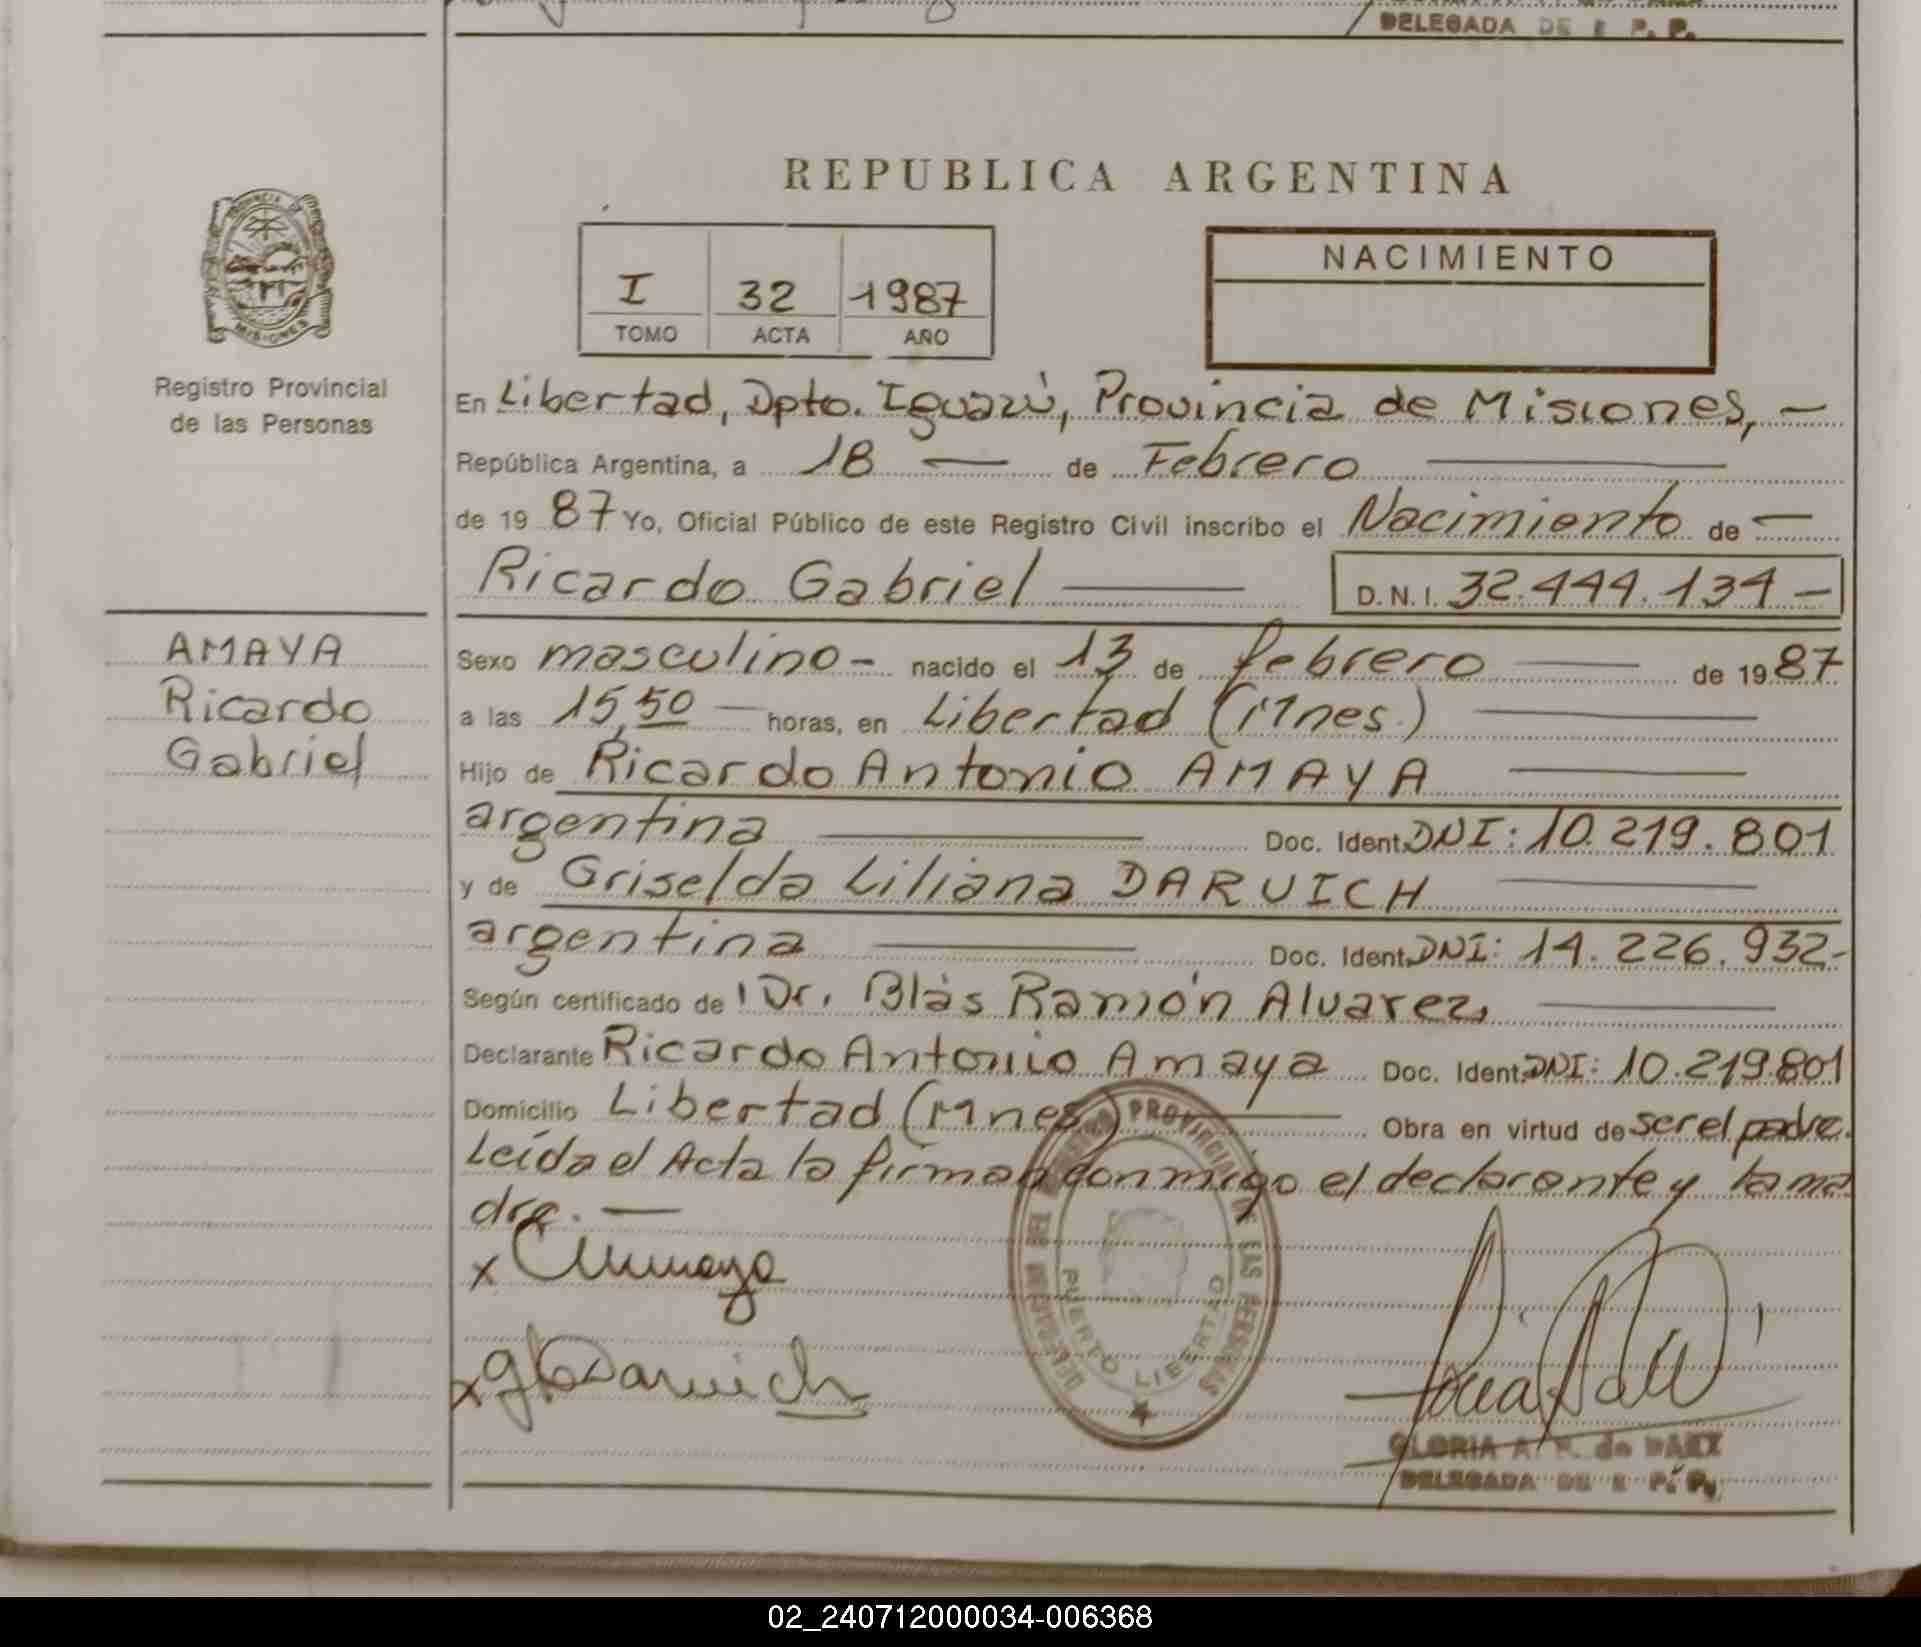 DELEGADA DE E P. P.
REPUBLICA ARGENTINA
PROVINCIA DE
MISIONES
Registro Provincial
de las Personas
I 32 1987
TOMO ACTA AÑO
NACIMIENTO
En Libertad, Dpto. Iguazú, Provincia de Misiones, —
República Argentina, a 18 — de Febrero —
de 19 87 Yo, Oficial Público de este Registro Civil inscribo el Nacimiento de —
Ricardo Gabriel — D.N.I. 32.444.134 —
AMAYA
Ricardo
Gabriel
Sexo masculino - nacido el 13 de febrero — de 19 87
a las 15,50 — horas, en Libertad (Mnes.) —
Hijo de Ricardo Antonio AMAYA —
argentina — Doc. Ident. DNI: 10.219.801
y de Griselda Liliana DARUICH —
argentina — Doc. Ident. DNI: 14.226.932-
Según certificado de Dr. Blás Ramón Alvarez, —
Declarante Ricardo Antonio Amaya Doc. Ident. DNI: 10.219.801
Domicilio Libertad (Mnes.) — Obra en virtud de ser el padre.
Leída el Acta la firman conmigo el declarante y la ma
dre. —
x Amaya
x Daruich
PROVINCIAL DE LAS PERSONAS
PUERTO LIBERTAD
GLORIA A. de
DELEGADA DE E P. P.
02_240712000034-006368